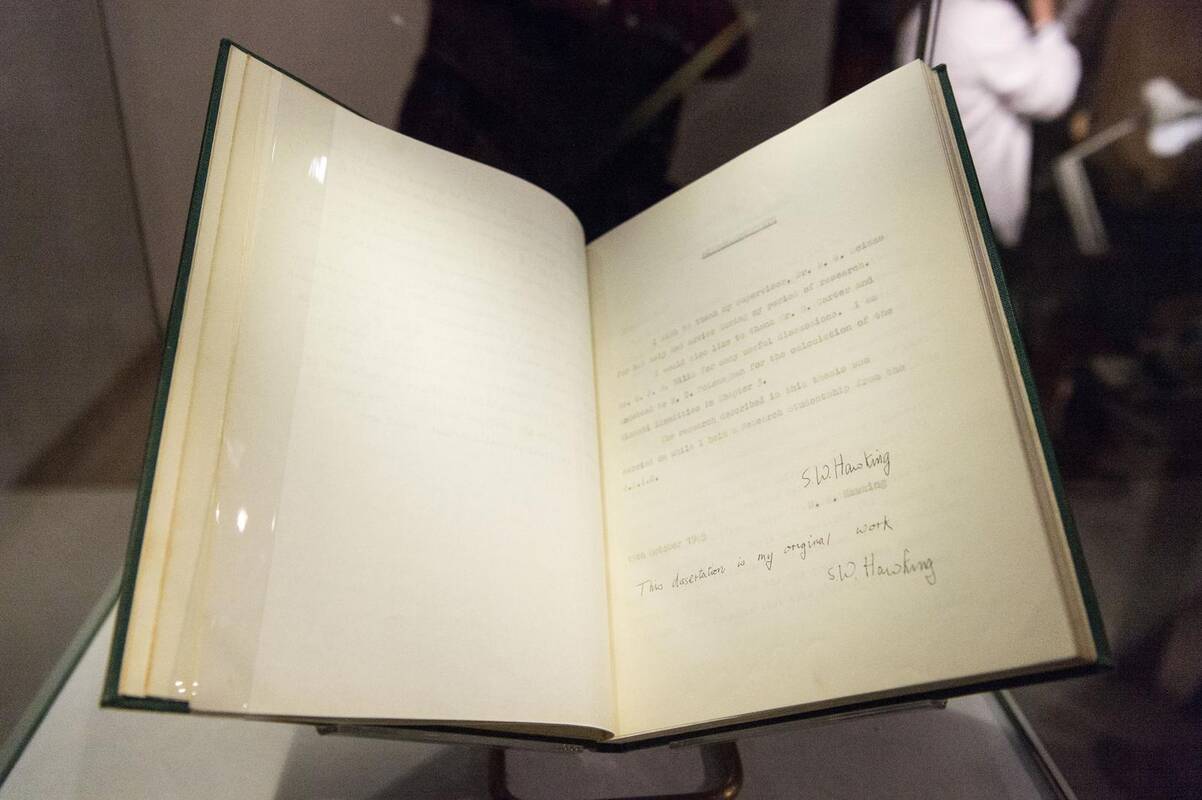 I wish to thank my supervisor, Dr. D. W. Sciama
for his help and advice during my period of research.
I would also like to thank Mr. B. Carter and
Mr. G. F. R. Ellis for many useful discussions. I am
indebted to R. G. McLenaghan for the calculation of the
Bianchi Identities in Chapter 3.
The research described in this thesis was
carried on while I held a Research Studentship from the
S.W. Hawking
S. W. Hawking
October 1965
This dissertation is my original work
S.W. Hawking